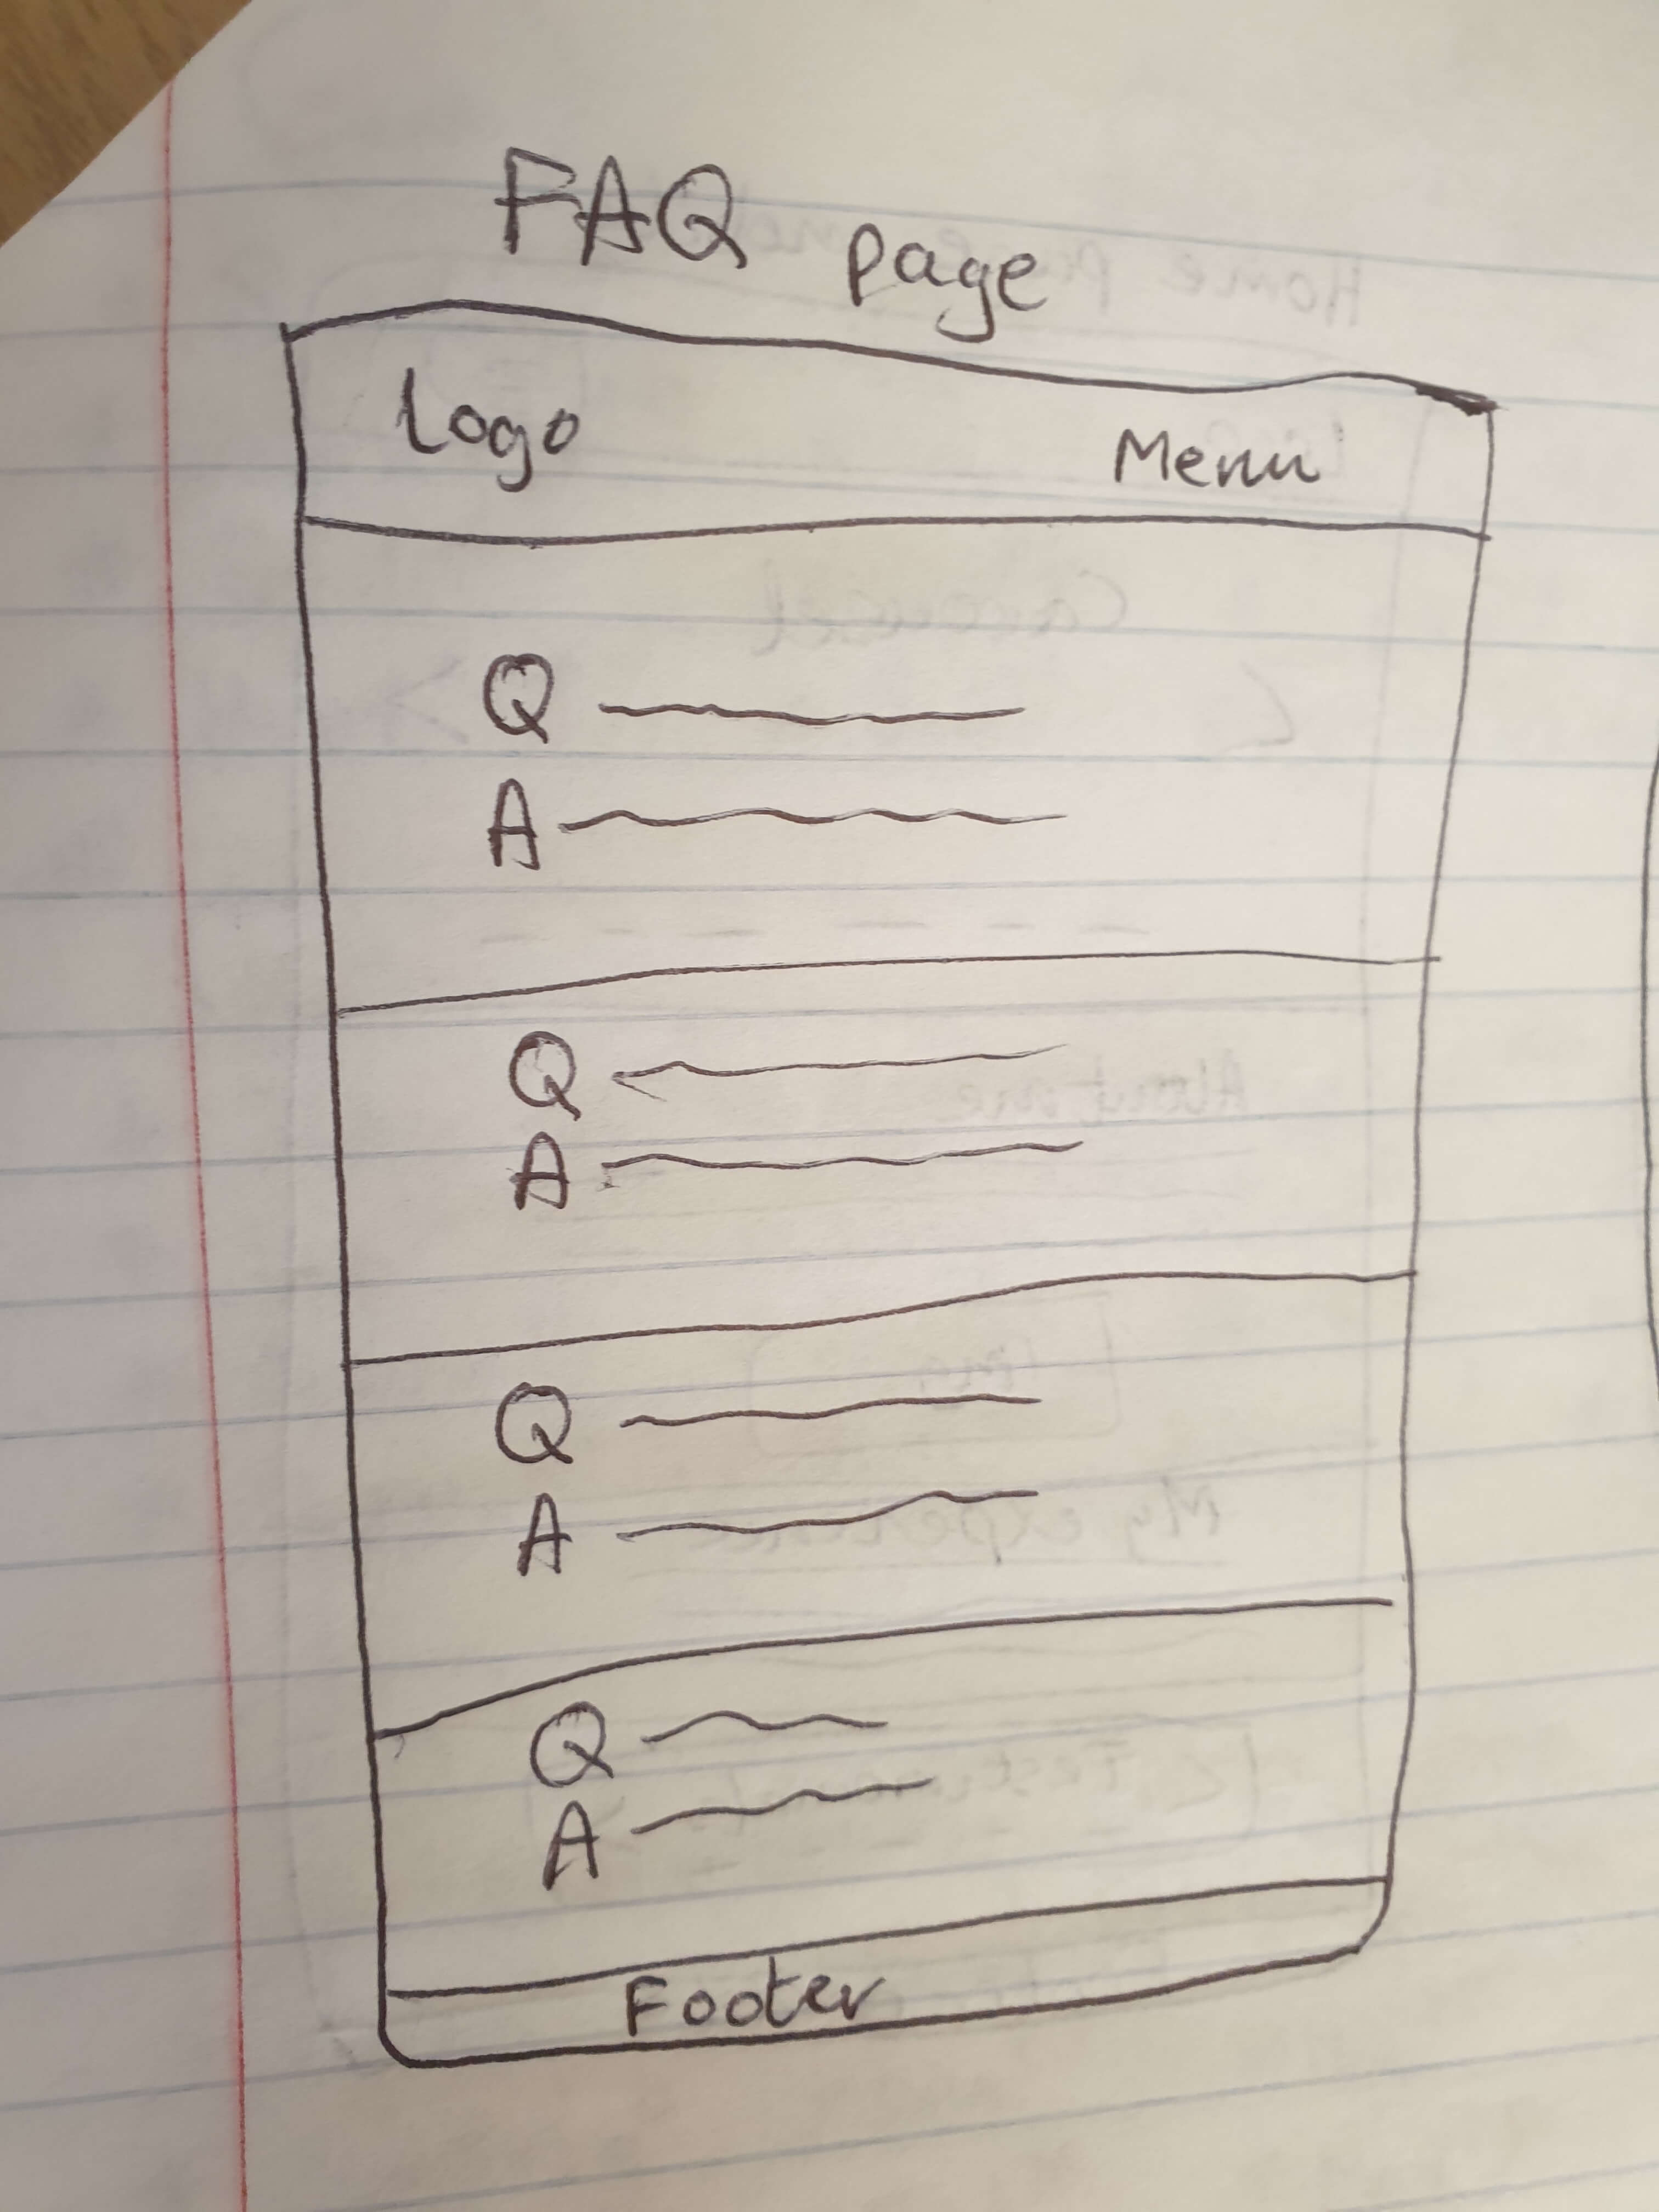 FAQ page
Logo Menu
Q
A
Q
A
Q
A
Q
A
Footer